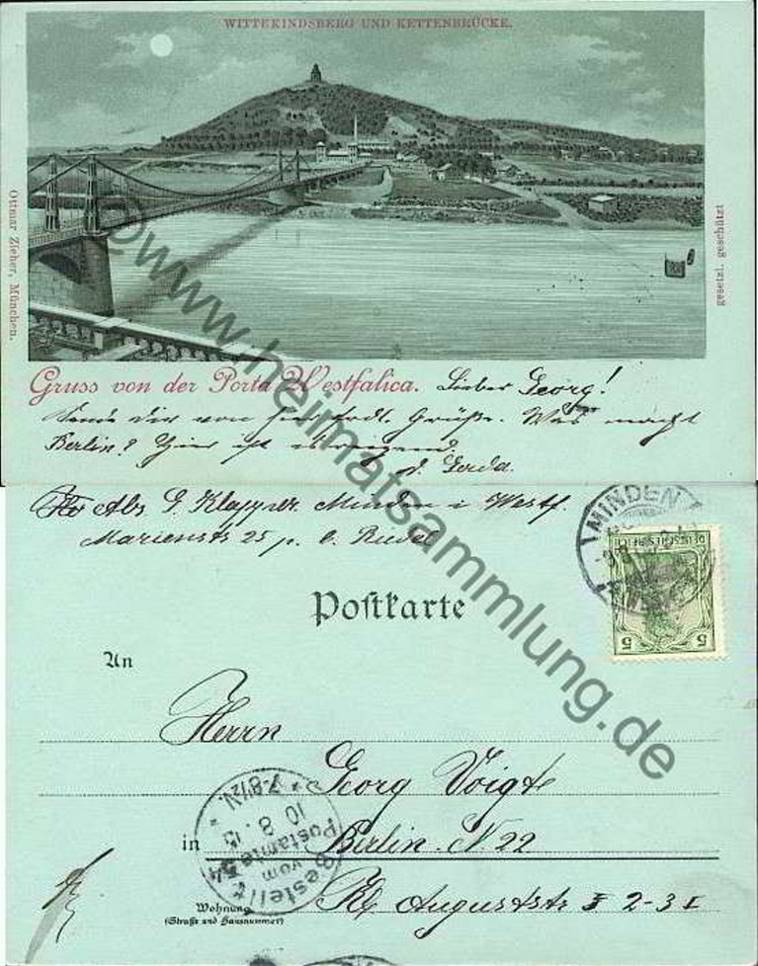 WITTEKINDSBERG UND KETTENBRÜCKE.
Ottmar Zieher, München.
gesetzl. geschützt
Gruss von der Porta Westfalica. Lieber Georg!
Sende dir von hier Grüße. Was macht
Berlin? Hier ist
d. Gerda.
Abs G. Klapper. Minden i Westf.
Marienstr 25 p.
MINDEN
DEUTSCHES REICH
5 5
Postkarte
An
Herrn
Georg Voigt
in Berlin. N 22
Kl. Auguststr 2-3 I
Wohnung
(Straße und Hausnummer)
Bestellt
vom
Postamte 54
10 8. 15
7-8½V.
©www.heimatsammlung.de